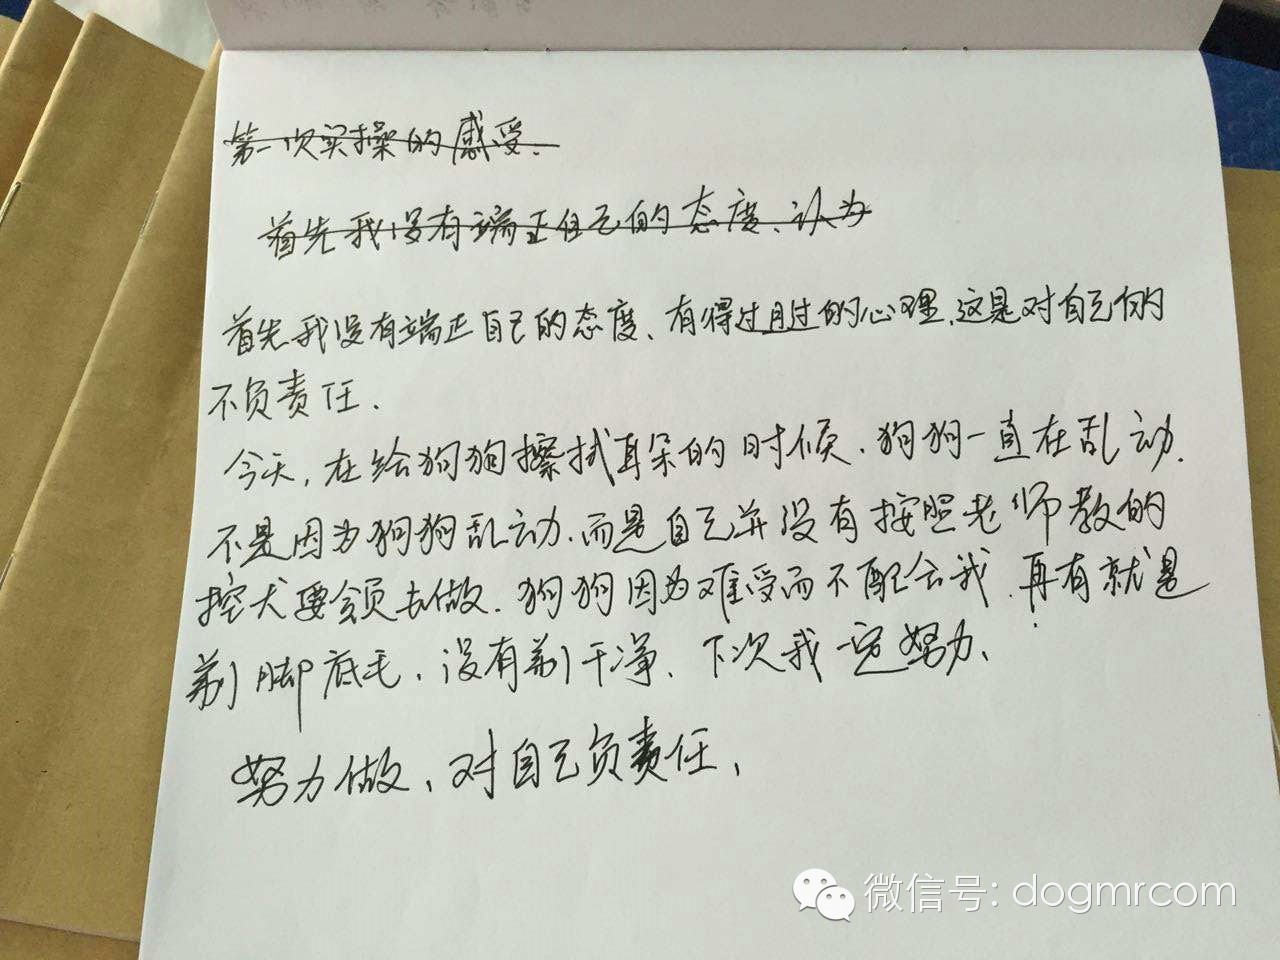 第一次实操的感受.
首先我没有端正自己的态度、认为
首先我没有端正自己的态度、有得过且过的心理.这是对自己的
不负责任.
今天,在给狗狗擦拭耳朵的时候.狗狗一直在乱动.
不是因为狗狗乱动.而是自己并没有按照老师教的
控犬要领去做.狗狗因为难受而不配合我.再有就是
剃脚底毛,没有剃干净.下次我一定努力、
努力做,对自己负责任,
微信号: dogmrcom